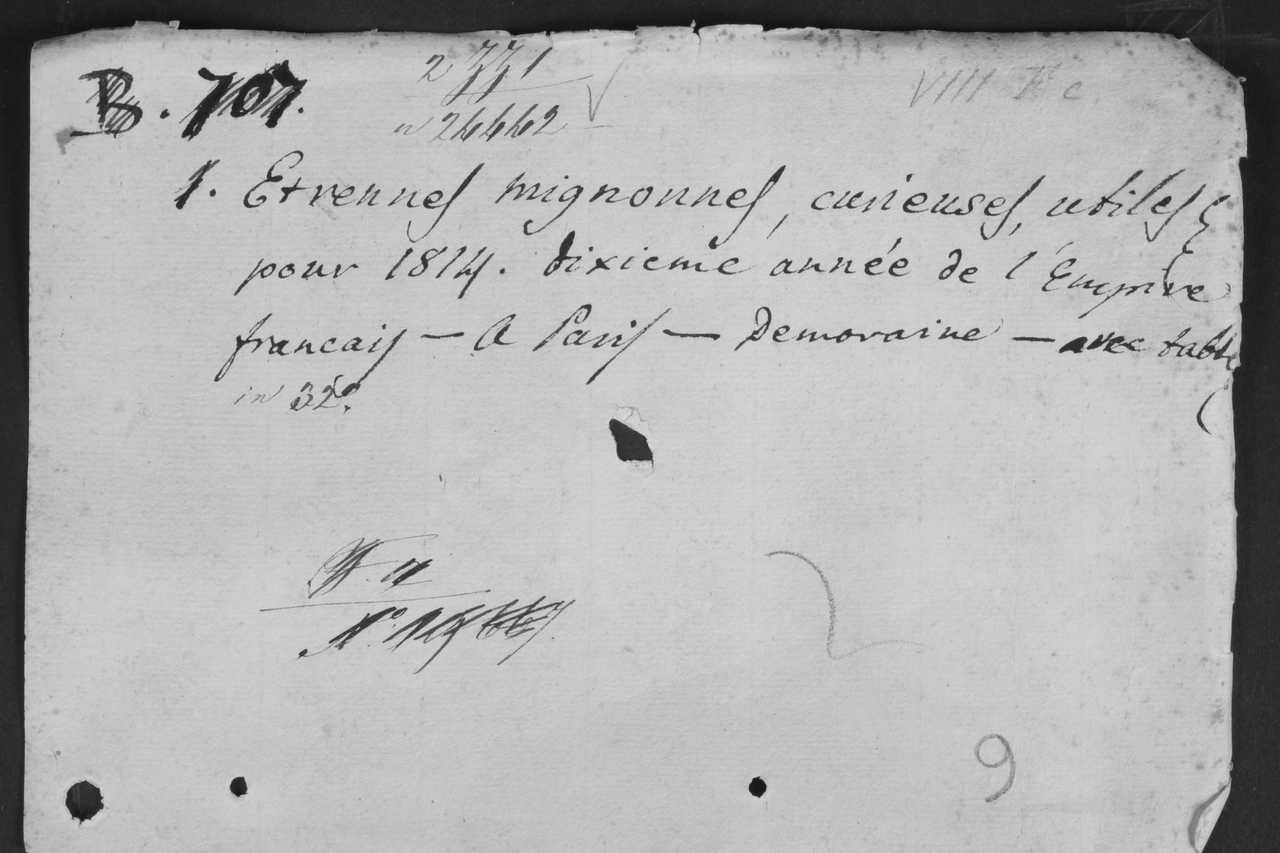 B. 707.
VIII F c.
n 26462
1. Etrennes mignonnes, curieuses, utiles
pour 1814. dixieme année de l'Empire
francais — A Paris — Demoraine — avec tabl
in 32º.
9